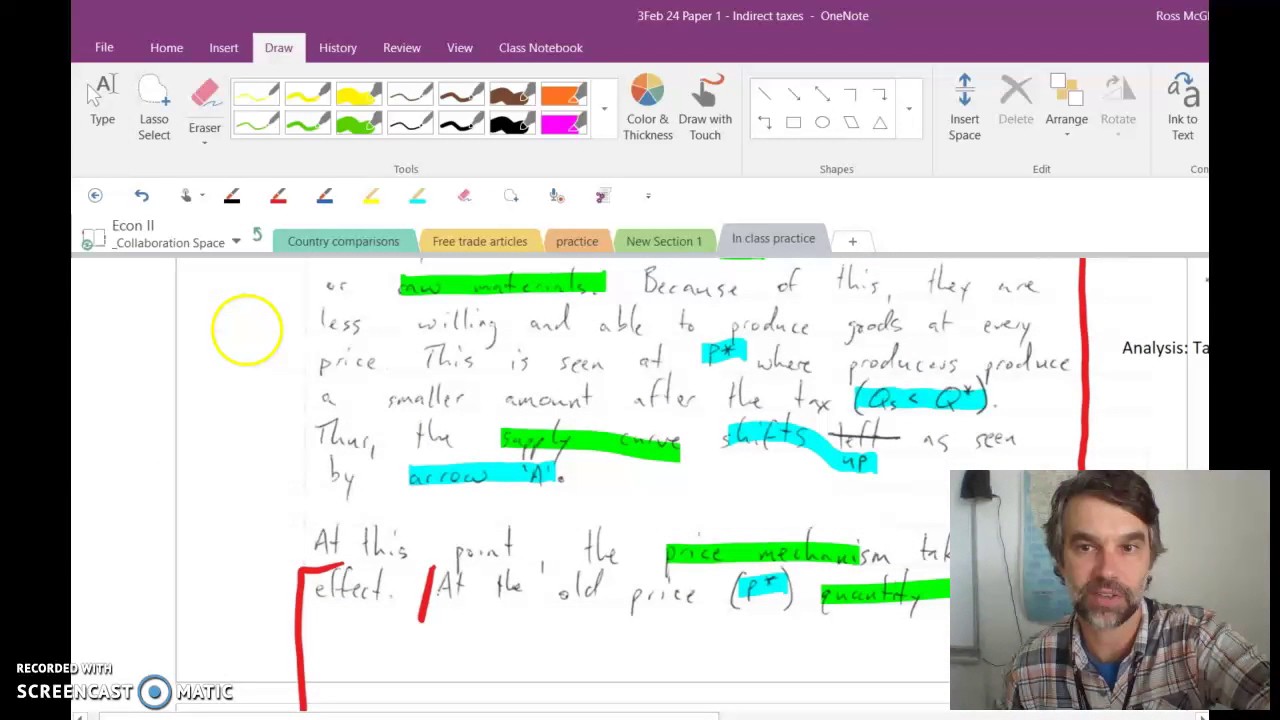 3Feb 24 Paper 1 - Indirect taxes - OneNote
Ross McG
File Home Insert Draw History Review View Class Notebook
Type
Lasso Select
Eraser
Color & Thickness
Draw with Touch
Insert Space
Delete
Arrange
Rotate
Ink to Text
Tools
Shapes
Edit
Con
Econ II
_Collaboration Space
Country comparisons
Free trade articles
practice
New Section 1
In class practice
or raw materials. Because of this, they are
less willing and able to produce goods at every
price. This is seen at P* where producers produce
a smaller amount after the tax (Qs < Q*).
Thus, the supply curve shifts left as seen
up
by arrow 'A'.
At this point, the price mechanism tak
effect. At the old price (P*) quantity
Analysis: Ta
RECORDED WITH
SCREENCAST MATIC